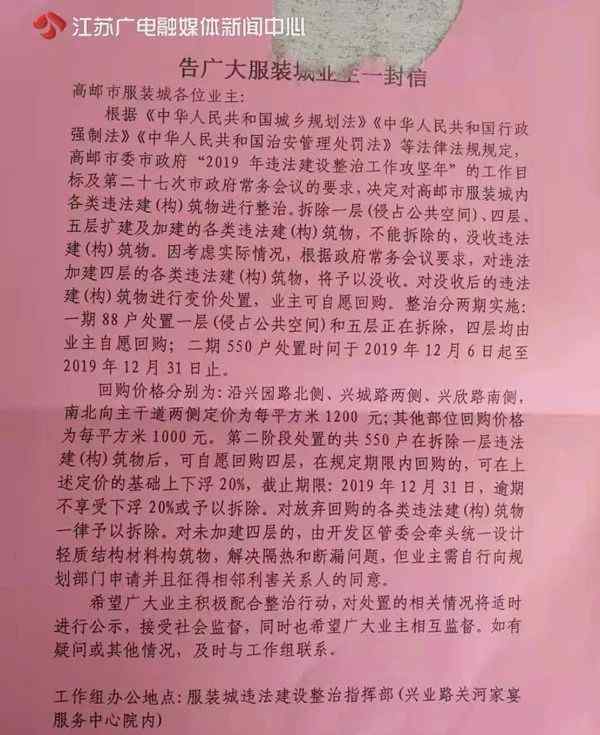 江苏广电融媒体新闻中心
告广大服装城业主一封信
高邮市服装城各位业主:
根据《中华人民共和国城乡规划法》《中华人民共和国行政
强制法》《中华人民共和国治安管理处罚法》等法律法规规定,
高邮市委市政府“2019 年违法建设整治工作攻坚年”的工作目
标及第二十七次市政府常务会议的要求,决定对高邮市服装城内
各类违法建(构)筑物进行整治。拆除一层(侵占公共空间)、四层、
五层扩建及加建的各类违法建(构)筑物,不能拆除的,没收违法
建(构)筑物。因考虑实际情况,根据政府常务会议要求,对违法
加建四层的各类违法建(构)筑物,将予以没收。对没收后的违法
建(构)筑物进行变价处置,业主可自愿回购。整治分两期实施:
一期 88 户处置一层(侵占公共空间)和五层正在拆除,四层均由
业主自愿回购;二期 550 户处置时间于 2019 年 12 月 6 日起至
2019 年 12 月 31 日止。
回购价格分别为:沿兴园路北侧、兴城路两侧、兴欣路南侧,
南北向主干道两侧定价为每平方米 1200 元;其他部位回购价格
为每平方米 1000 元。第二阶段处置的共 550 户在拆除一层违法
建(构)筑物后,可自愿回购四层,在规定期限内回购的,可在上
述定价的基础上下浮 20%,截止期限:2019 年 12 月 31 日,逾期
不享受下浮 20%或予以拆除。对放弃回购的各类违法建(构)筑物
一律予以拆除。对未加建四层的,由开发区管委会牵头统一设计
轻质结构材料构筑物,解决隔热和断漏问题,但业主需自行向规
划部门申请并且征得相邻利害关系人的同意。
希望广大业主积极配合整治行动,对处置的相关情况将适时
进行公示,接受社会监督,同时也希望广大业主相互监督。如有
疑问或其他情况,及时与工作组联系。
工作组办公地点:服装城违法建设整治指挥部(兴业路关河家宴
服务中心院内)